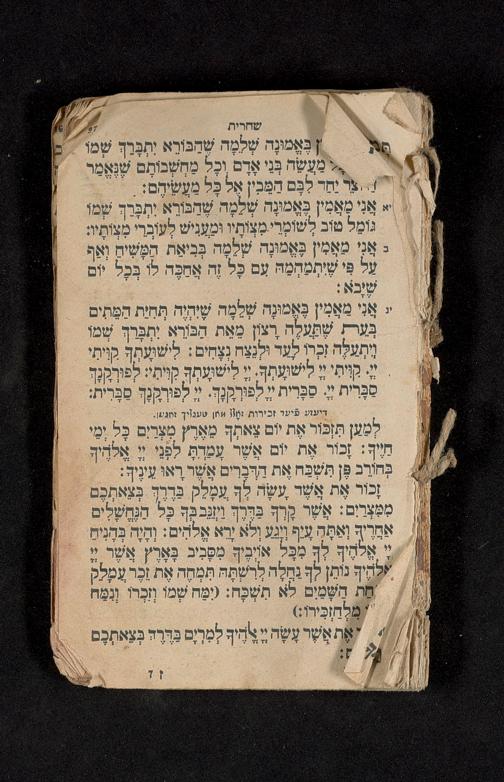 שחרית
97
בֶּאֱמוּנָה שְׁלֵמָה שֶׁהַבּוֹרֵא יִתְבָּרַךְ שְׁמוֹ
מַעֲשֵׂה בְּנֵי אָדָם וְכָל מַחְשְׁבוֹתָם שֶׁנֶּאֱמַר
יַחַד לִבָּם הַמֵּבִין אֶל כָּל מַעֲשֵׂיהֶם:
יא אֲנִי מַאֲמִין בֶּאֱמוּנָה שְׁלֵמָה שֶׁהַבּוֹרֵא יִתְבָּרַךְ שְׁמוֹ
גּוֹמֵל טוֹב לְשׁוֹמְרֵי מִצְוֹתָיו וּמַעֲנִישׁ לְעוֹבְרֵי מִצְוֹתָיו:
ב אֲנִי מַאֲמִין בֶּאֱמוּנָה שְׁלֵמָה בְּבִיאַת הַמָּשִׁיחַ וְאַף
עַל פִּי שֶׁיִּתְמַהְמֵהַּ עִם כָּל זֶה אֲחַכֶּה לּוֹ בְּכָל יוֹם
שֶׁיָּבֹא:
יג אֲנִי מַאֲמִין בֶּאֱמוּנָה שְׁלֵמָה שֶׁיִּהְיֶה תְּחִיַּת הַמֵּתִים
בְּעֵת שֶׁתַּעֲלֶה רָצוֹן מֵאֵת הַבּוֹרֵא יִתְבָּרַךְ שְׁמוֹ
וְיִתְעַלֶּה זִכְרוֹ לָעַד וּלְנֵצַח נְצָחִים: לִישׁוּעָתְךָ קִוִּיתִי
יְיָ. קִוִּיתִי יְיָ לִישׁוּעָתְךָ. יְיָ לִישׁוּעָתְךָ קִוִּיתִי: לְפוּרְקָנָךְ
סַבָּרִית יְיָ. סַבָּרִית יְיָ לְפוּרְקָנָךְ. יְיָ לְפוּרְקָנָךְ סַבָּרִית:
דיעזע פיער זכירות זאָגען.
לְמַעַן תִּזְכּוֹר אֶת יוֹם צֵאתְךָ מֵאֶרֶץ מִצְרַיִם כָּל יְמֵי
חַיֶּיךָ: זָכוֹר אֶת יוֹם אֲשֶׁר עָמַדְתָּ לִפְנֵי יְיָ אֱלֹהֶיךָ
בְּחוֹרֵב פֶּן תִּשְׁכַּח אֶת הַדְּבָרִים אֲשֶׁר רָאוּ עֵינֶיךָ:
זָכוֹר אֶת אֲשֶׁר עָשָׂה לְךָ עֲמָלֵק בַּדֶּרֶךְ בְּצֵאתְכֶם
מִמִּצְרַיִם: אֲשֶׁר קָרְךָ בַּדֶּרֶךְ וַיְזַנֵּב בְּךָ כָּל הַנֶּחֱשָׁלִים
אַחֲרֶיךָ וְאַתָּה עָיֵף וְיָגֵעַ וְלֹא יָרֵא אֱלֹהִים: וְהָיָה בְּהָנִיחַ
יְיָ אֱלֹהֶיךָ לְךָ מִכָּל אוֹיְבֶיךָ מִסָּבִיב בָּאָרֶץ אֲשֶׁר יְיָ
אֱלֹהֶיךָ נוֹתֵן לְךָ נַחֲלָה לְרִשְׁתָּהּ תִּמְחֶה אֶת זֵכֶר עֲמָלֵק
הַשָּׁמַיִם לֹא תִשְׁכָּח: (יִמַּח שְׁמוֹ וְזִכְרוֹ וְנִמַּח
מִלְּהַזְכִּירוֹ:)
אֶת אֲשֶׁר עָשָׂה יְיָ אֱלֹהֶיךָ לְמִרְיָם בַּדֶּרֶךְ בְּצֵאתְכֶם
ז ד